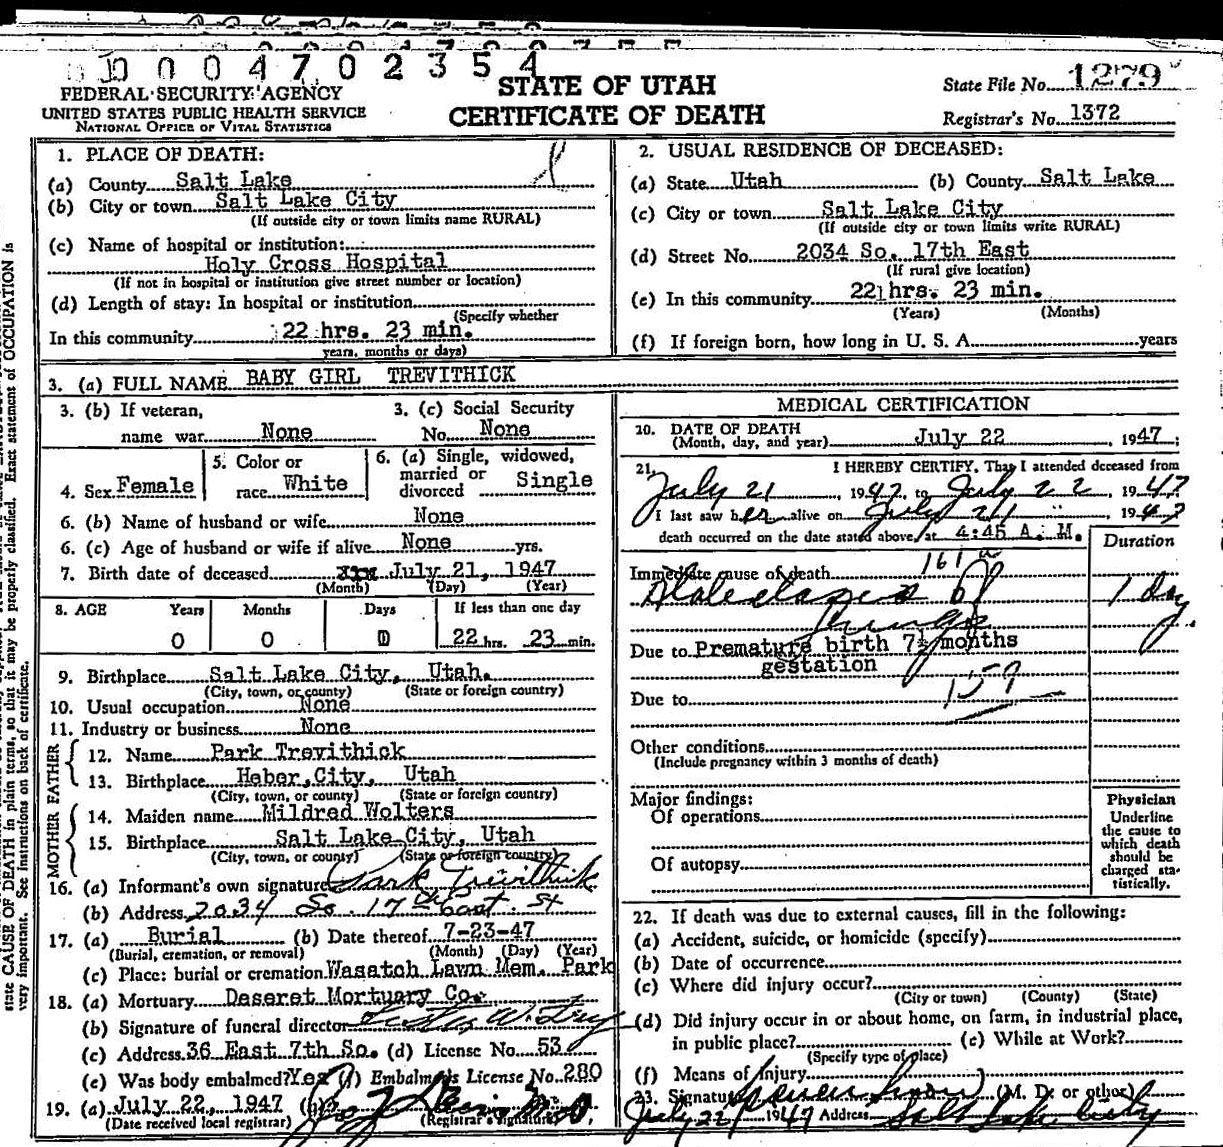 0 0 0 4 7 0 2 3 5 4
FEDERAL SECURITY AGENCY
UNITED STATES PUBLIC HEALTH SERVICE
NATIONAL OFFICE OF VITAL STATISTICS
STATE OF UTAH
CERTIFICATE OF DEATH
State File No. 1279
Registrar's No. 1372
1. PLACE OF DEATH:
(a) County Salt Lake
(b) City or town Salt Lake City
(If outside city or town limits name RURAL)
(c) Name of hospital or institution:
Holy Cross Hospital
(If not in hospital or institution give street number or location)
(d) Length of stay: In hospital or institution
(Specify whether
In this community 22 hrs. 23 min.
years, months or days)
2. USUAL RESIDENCE OF DECEASED:
(a) State Utah (b) County Salt Lake
(c) City or town Salt Lake City
(If outside city or town limits write RURAL)
(d) Street No. 2034 So. 17th East
(If rural give location)
(e) In this community 22 hrs. 23 min.
(Years) (Months)
(f) If foreign born, how long in U. S. A. years
3. (a) FULL NAME BABY GIRL TREVITHICK
3. (b) If veteran,
name war None
3. (c) Social Security
No. None
4. Sex Female
5. Color or
race White
6. (a) Single, widowed,
married or
divorced Single
6. (b) Name of husband or wife None
6. (c) Age of husband or wife if alive None yrs.
7. Birth date of deceased July 21, 1947
(Month) (Day) (Year)
8. AGE Years Months Days If less than one day
0 0 0 22 hrs. 23 min.
9. Birthplace Salt Lake City, Utah.
(City, town, or county) (State or foreign country)
10. Usual occupation None
11. Industry or business None
FATHER
12. Name Park Trevithick
13. Birthplace Heber City, Utah
(City, town, or county) (State or foreign country)
MOTHER
14. Maiden name Mildred Wolters
15. Birthplace Salt Lake City, Utah
(City, town, or county) (State or foreign country)
16. (a) Informant's own signature Park Trevithick
(b) Address 2034 So. 17th East St
17. (a) Burial (b) Date thereof 7-23-47
(Burial, cremation, or removal) (Month) (Day) (Year)
(c) Place: burial or cremation Wasatch Lawn Mem. Park
18. (a) Mortuary Deseret Mortuary Co.
(b) Signature of funeral director
(c) Address 36 East 7th So. (d) License No. 53
(e) Was body embalmed? Yes (f) Embalmer's License No. 280
19. (a) July 22, 1947 (b)
(Date received local registrar) (Registrar's signature)
MEDICAL CERTIFICATION
20. DATE OF DEATH
(Month, day, and year) July 22, 1947;
21. I HEREBY CERTIFY, That I attended deceased from
July 21, 1947, to July 22, 1947
I last saw her alive on July 21, 1947
death occurred on the date stated above, at 4:45 A. M.
Duration
161a
Immediate cause of death
Atalectasis of 1 day
lungs
Due to Premature birth 7½ months
gestation
159
Due to
Other conditions
(Include pregnancy within 3 months of death)
Major findings:
Of operations
Of autopsy
Physician
Underline
the cause to
which death
should be
charged sta-
tistically.
22. If death was due to external causes, fill in the following:
(a) Accident, suicide, or homicide (specify)
(b) Date of occurrence
(c) Where did injury occur?
(City or town) (County) (State)
(d) Did injury occur in or about home, on farm, in industrial place,
in public place? (e) While at Work?
(Specify type of place)
(f) Means of Injury
23. Signature (M. D. or other)
July 22 1947 Address Salt Lake City
state CAUSE OF DEATH in plain terms, so that it may be properly classified. Exact statement of OCCUPATION is
very important. See instructions on back of certificate.